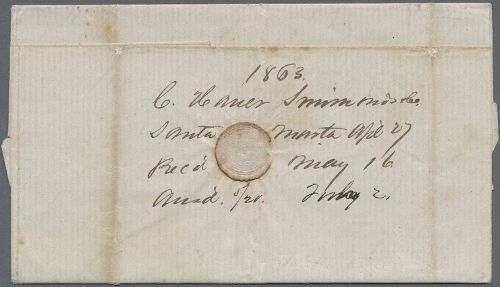 1863.
C. Hauer Simmonds &co
Santa Marta Apl 27
Rec'd May 16
Ansd. July 2.